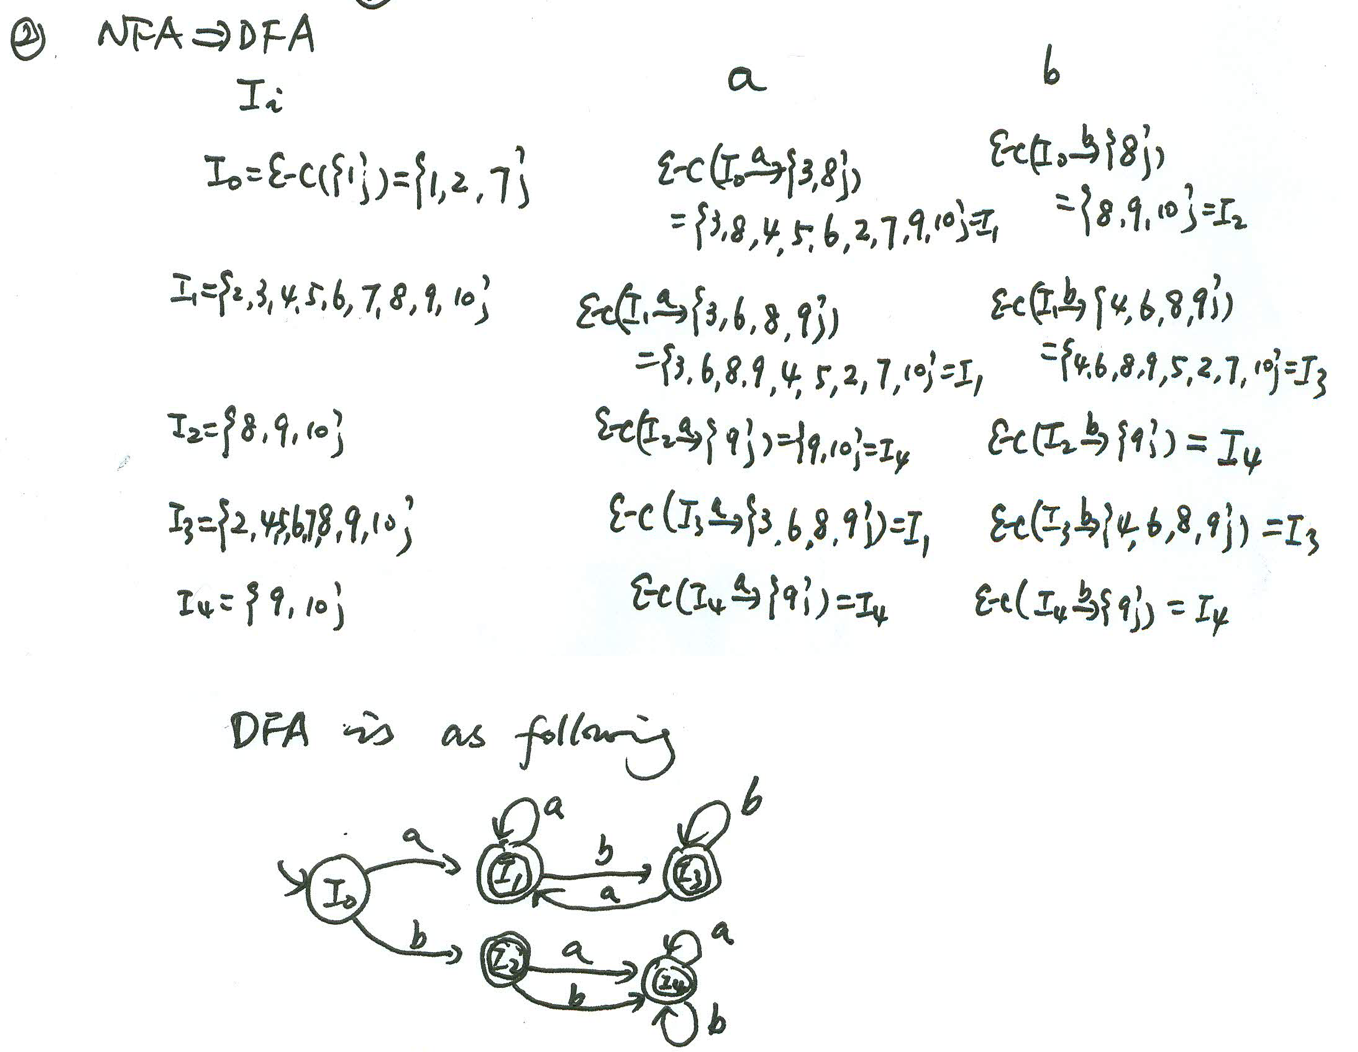 ② NFA ⇒ DFA
Ii a b
I0=ε-c({1})={1,2,7} ε-c(I0 a→{3,8}) ε-c(I0 b→{8})
={3,8,4,5,6,2,7,9,10}=I1 ={8,9,10}=I2
I1={2,3,4,5,6,7,8,9,10} ε-c(I1 a→{3,6,8,9}) ε-c(I1 b→{4,6,8,9})
={3,6,8,9,4,5,2,7,10}=I1 ={4,6,8,9,5,2,7,10}=I3
I2={8,9,10} ε-c(I2 a→{9})={9,10}=I4 ε-c(I2 b→{9})=I4
I3={2,4,5,6,7,8,9,10} ε-c(I3 a→{3,6,8,9})=I1 ε-c(I3 b→{4,6,8,9})=I3
I4={9,10} ε-c(I4 a→{9})=I4 ε-c(I4 b→{9})=I4
DFA is as following
a b
a I1 b I3
I0 a
b I2 a I4 a
b b